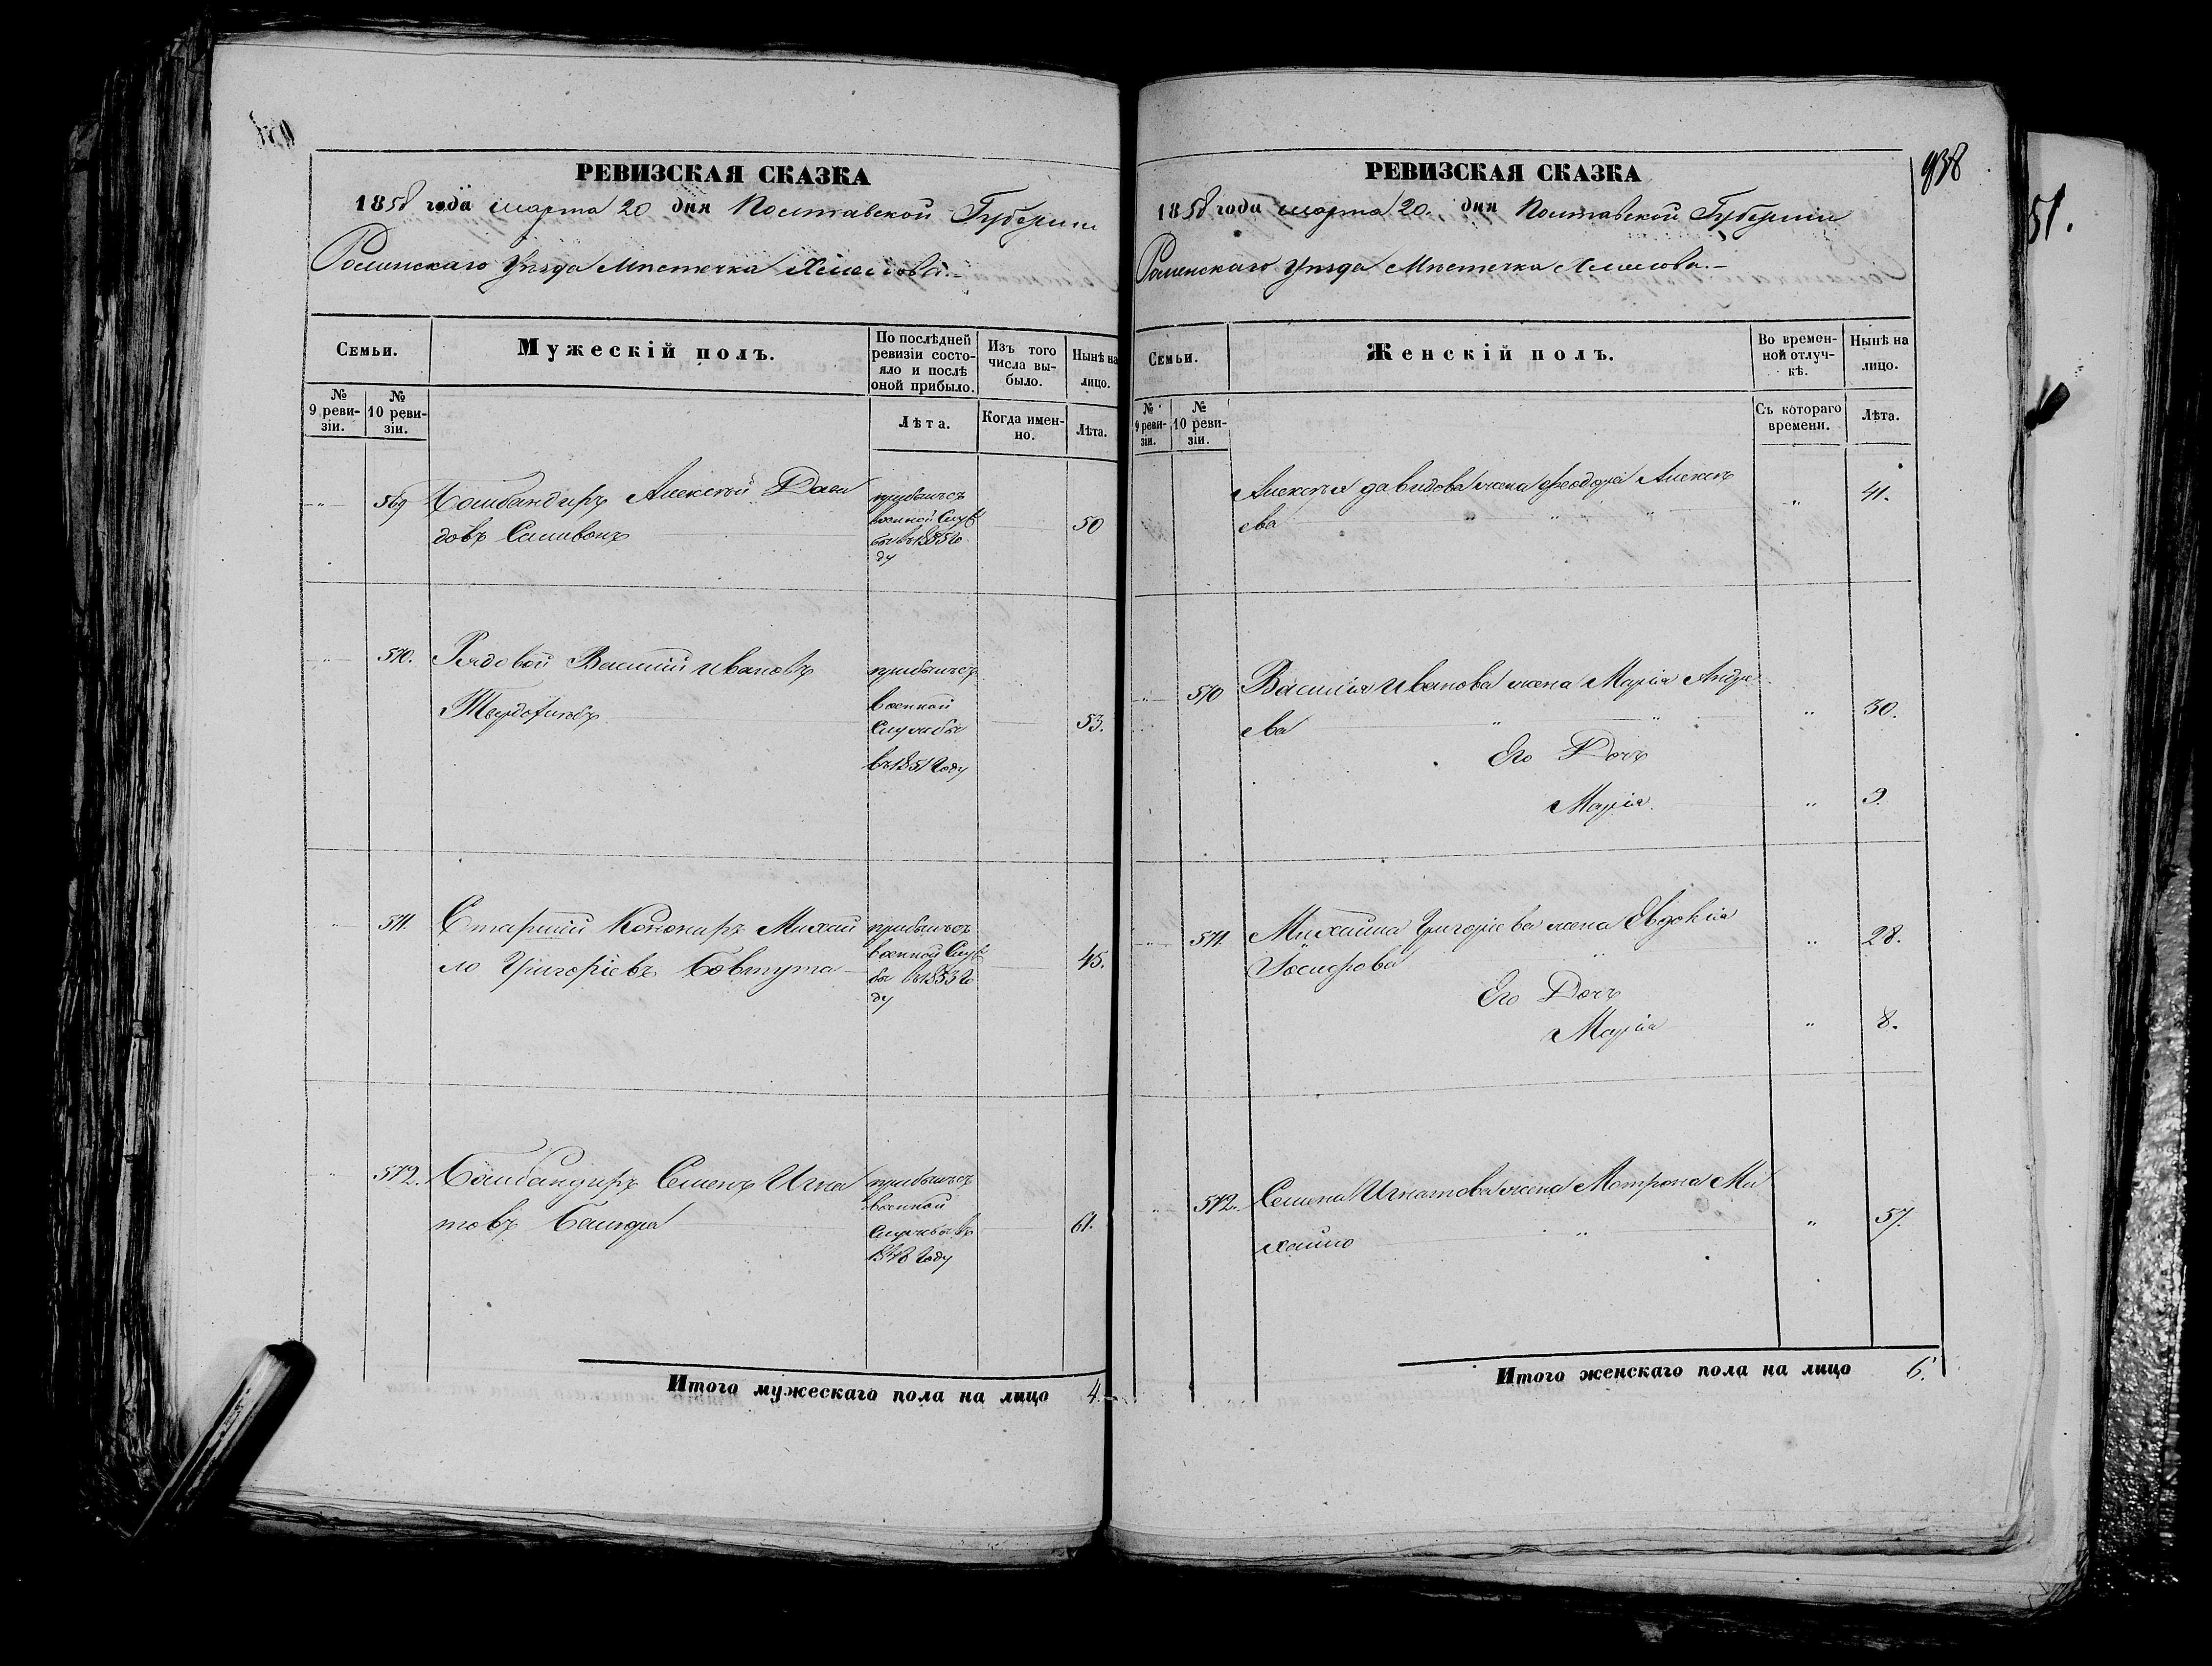 РЕВИЗСКАЯ СКАЗКА
1858 года марта 20 дня Полтавской Губернии
Роменскаго Уезда Местечка Хмелова.-
Семьи.
Мужескій полъ.
По послѣдней ревизіи состо-
яло и послѣ
оной прибыло.
Изъ того
числа вы-
было.
Нынѣ на
лицо.
№
9 реви-
зіи.
№
10 реви-
зіи.
Лѣта.
Когда имен-
но.
Лѣта.
569 Бомбандиръ Алексѣй Дави
довъ Саливонъ
прибылъ съ
военной Служ
бы въ 1855 го
ду
50
570. Рядовой Василий Ивановъ
Твердохлебъ
прибылъ съ
военной
Службы
въ 1851 году
53.
571. Старший Конониръ Михаи
ло Григоріевъ Бовтута
прибылъ съ
военной Служ
бы въ 1853 го
ду
45.
572. Бомбандиръ Семенъ Игна
товъ
прибылъ съ
военной
Службы въ
1848 году
61.
Итого мужескаго пола на лицо 4.
938
РЕВИЗСКАЯ СКАЗКА
1858 года марта 20. дня Полтавской Губернии
Роменскаго Уезда Местечка Хмелова.-
Семьи.
Женскій полъ.
Во времен-
ной отлуч-
кѣ.
Нынѣ на
лицо.
№
9 реви-
зіи.
№
10 реви-
зіи.
Съ котораго
времени.
Лѣта.
Алексѣя Давидова жена Алексѣ
ева
" 41.
570 Василия Иванова жена Марія Андре
ева
" 30.
Его Дочь
Марія. " 3.
571. Михаила Григоріева жена Евдокія
" 28.
Его Дочь
Марія " 8.
572. Семена Игнатова жена Матрона Ми
хайло
" 57.
Итого женскаго пола на лицо 6.
51.